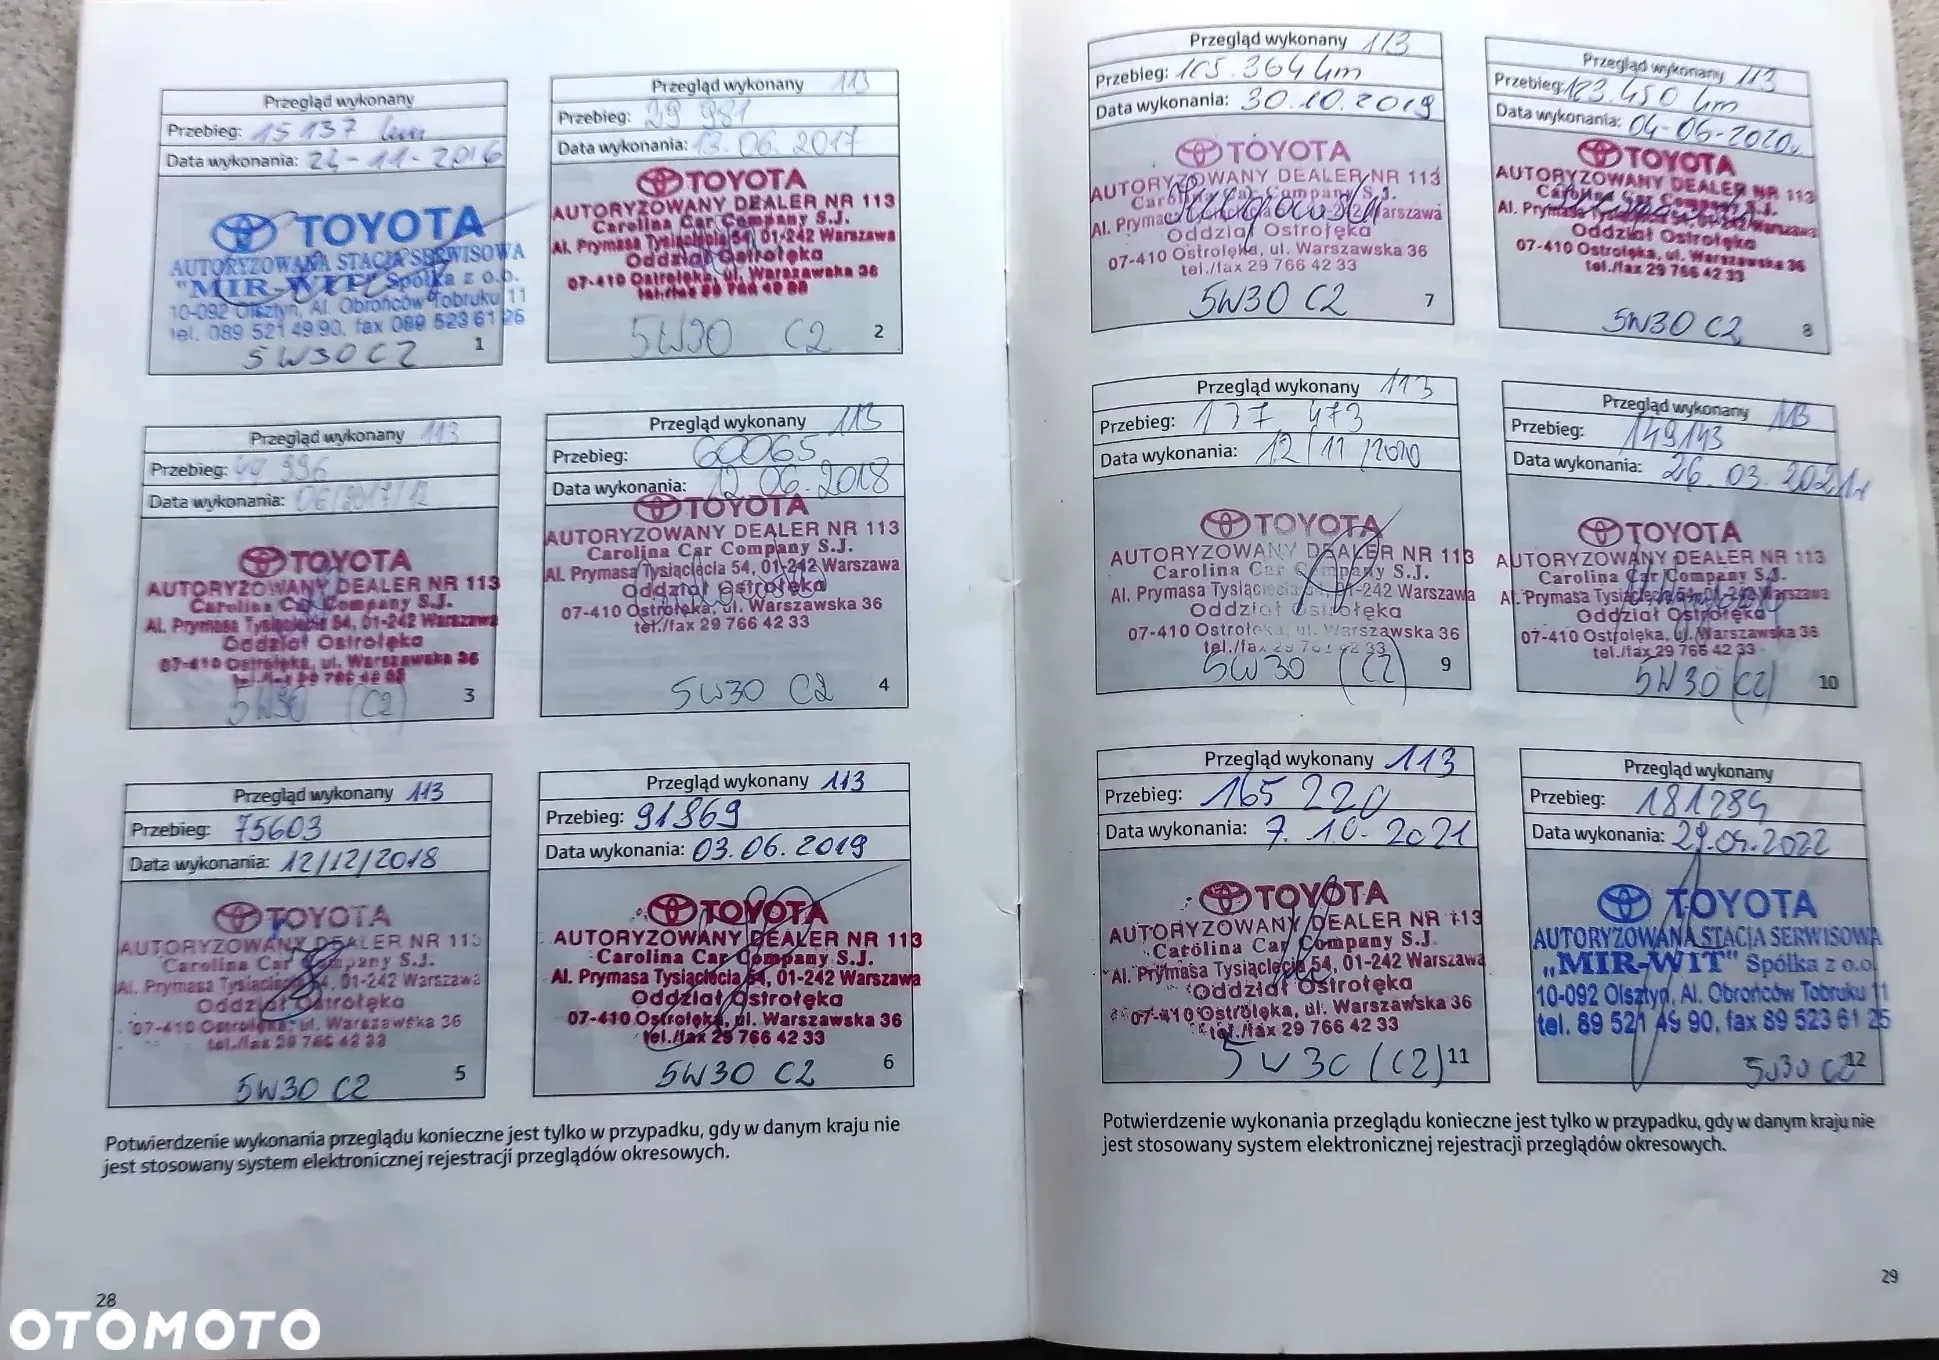 Przegląd wykonany
Przebieg: 15 137 km
Data wykonania: 24-11-2016
TOYOTA
AUTORYZOWANA STACJA SERWISOWA
"MIR-WIT" Spółka z o.o.
10-092 Olsztyn, Al. Obrońców Tobruku 11
tel. 089 521 49 90, fax 089 523 61 25
5W30 C2
1
Przegląd wykonany 113
Przebieg: 29 981
Data wykonania: 13.06.2017
TOYOTA
AUTORYZOWANY DEALER NR 113
Carolina Car Company S.J.
Al. Prymasa Tysiąclecia 54, 01-242 Warszawa
Oddział Ostrołęka
07-410 Ostrołęka, ul. Warszawska 36
tel./fax 29 766 42 33
5W30 C2
2
Przegląd wykonany 113
Przebieg: 44 996
Data wykonania: 06/2017/12
TOYOTA
AUTORYZOWANY DEALER NR 113
Carolina Car Company S.J.
Al. Prymasa Tysiąclecia 54, 01-242 Warszawa
Oddział Ostrołęka
07-410 Ostrołęka, ul. Warszawska 36
tel./fax 29 766 42 33
5W30 (C2)
3
Przegląd wykonany 113
Przebieg: 60065
Data wykonania: 12.06.2018
TOYOTA
AUTORYZOWANY DEALER NR 113
Carolina Car Company S.J.
Al. Prymasa Tysiąclecia 54, 01-242 Warszawa
Oddział Ostrołęka
07-410 Ostrołęka, ul. Warszawska 36
tel./fax 29 766 42 33
5W30 C2
4
Przegląd wykonany 113
Przebieg: 75603
Data wykonania: 12/12/2018
TOYOTA
AUTORYZOWANY DEALER NR 113
Carolina Car Company S.J.
Al. Prymasa Tysiąclecia 54, 01-242 Warszawa
Oddział Ostrołęka
07-410 Ostrołęka, ul. Warszawska 36
tel./fax 29 766 42 33
5W30 C2
5
Przegląd wykonany 113
Przebieg: 91869
Data wykonania: 03.06.2019
TOYOTA
AUTORYZOWANY DEALER NR 113
Carolina Car Company S.J.
Al. Prymasa Tysiąclecia 54, 01-242 Warszawa
Oddział Ostrołęka
07-410 Ostrołęka, ul. Warszawska 36
tel./fax 29 766 42 33
5W30 C2
6
Potwierdzenie wykonania przeglądu konieczne jest tylko w przypadku, gdy w danym kraju nie
jest stosowany system elektronicznej rejestracji przeglądów okresowych.
28
OTOMOTO
Przegląd wykonany 113
Przebieg: 105.364 km
Data wykonania: 30.10.2019
TOYOTA
AUTORYZOWANY DEALER NR 113
Carolina Car Company S.J.
Al. Prymasa Tysiąclecia 54, 01-242 Warszawa
Oddział Ostrołęka
07-410 Ostrołęka, ul. Warszawska 36
tel./fax 29 766 42 33
5W30 C2
7
Przegląd wykonany 113
Przebieg: 123.450 km
Data wykonania: 04-06-2020r.
TOYOTA
AUTORYZOWANY DEALER NR 113
Carolina Car Company S.J.
Al. Prymasa Tysiąclecia 54, 01-242 Warszawa
Oddział Ostrołęka
07-410 Ostrołęka, ul. Warszawska 36
tel./fax 29 766 42 33
5W30 C2
8
Przegląd wykonany 113
Przebieg: 137 473
Data wykonania: 12/11/2020
TOYOTA
AUTORYZOWANY DEALER NR 113
Carolina Car Company S.J.
Al. Prymasa Tysiąclecia 54, 01-242 Warszawa
Oddział Ostrołęka
07-410 Ostrołęka, ul. Warszawska 36
tel./fax 29 766 42 33
5W30 (C2)
9
Przegląd wykonany 113
Przebieg: 149143
Data wykonania: 26.03.2021r
TOYOTA
AUTORYZOWANY DEALER NR 113
Carolina Car Company S.J.
Al. Prymasa Tysiąclecia 54, 01-242 Warszawa
Oddział Ostrołęka
07-410 Ostrołęka, ul. Warszawska 36
tel./fax 29 766 42 33
5W30 (C2)
10
Przegląd wykonany 113
Przebieg: 165 220
Data wykonania: 7.10.2021
TOYOTA
AUTORYZOWANY DEALER NR 113
Carolina Car Company S.J.
Al. Prymasa Tysiąclecia 54, 01-242 Warszawa
Oddział Ostrołęka
07-410 Ostrołęka, ul. Warszawska 36
tel./fax 29 766 42 33
5W30 (C2)
11
Przegląd wykonany
Przebieg: 181284
Data wykonania: 29.04.2022
TOYOTA
AUTORYZOWANA STACJA SERWISOWA
„MIR-WIT" Spółka z o.o.
10-092 Olsztyn, Al. Obrońców Tobruku 11
tel. 89 521 49 90, fax 89 523 61 25
5W30 C2
12
Potwierdzenie wykonania przeglądu konieczne jest tylko w przypadku, gdy w danym kraju nie
jest stosowany system elektronicznej rejestracji przeglądów okresowych.
29